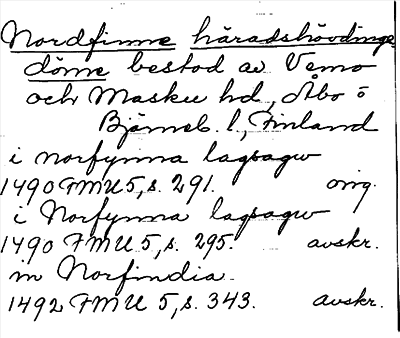 Nordfinne häradshövdinge
döme bestod av Vemo
och Masku hd, Åbo o
Björneb. l., Finland
i norfynna lagsagw
1490 FMU 5, s. 291. orig.
i Norfynna lagsagw
1490 FMU 5, s. 295. avskr.
in Norfindia.
1492 FMU 5, s. 343. avskr.